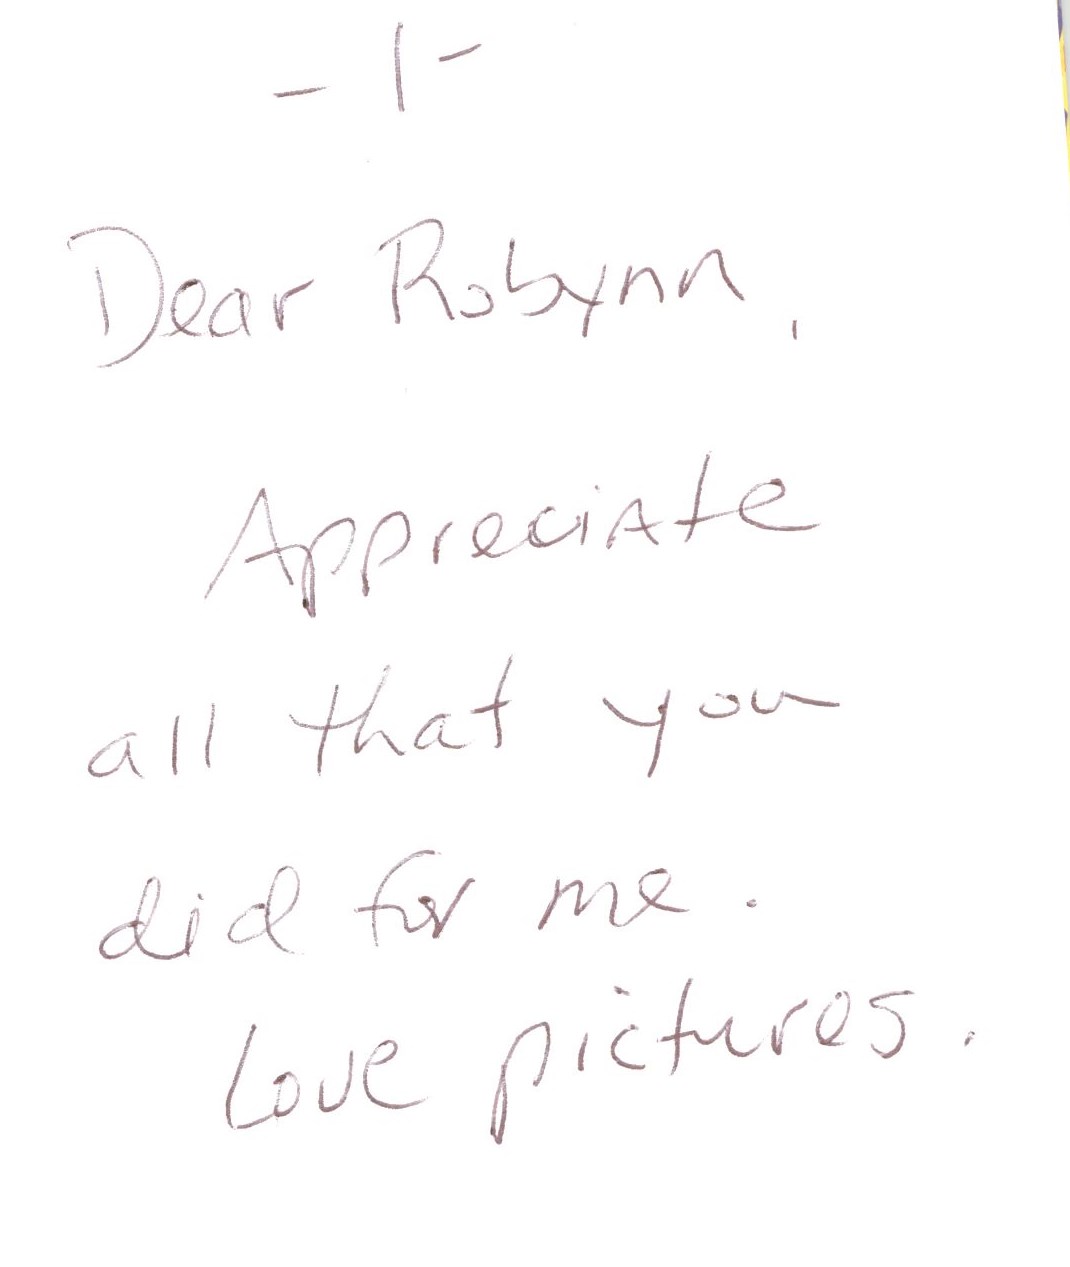 - 1 -
Dear Robynn,
Appreciate
all that you
did for me.
Love pictures.